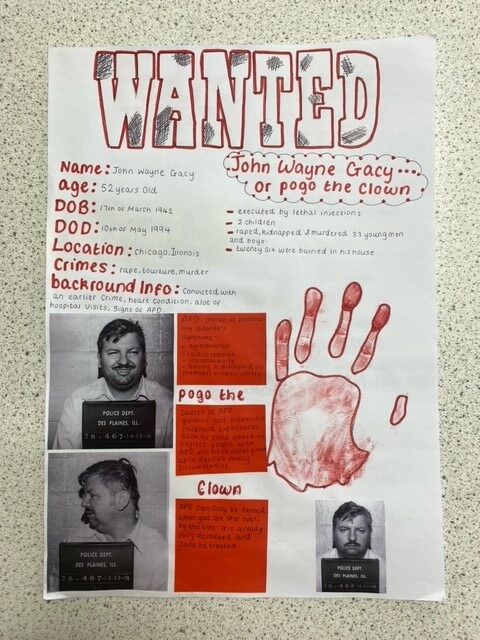 WANTED
Name: John Wayne Gacy
age: 52 years old
DOB: 17th of March 1942
DOD: 10th of May 1994
Location: Chicago, Ilionois
Crimes: rape, tourture, murder
backround Info: Convicted with
an earlier Crime, heart condition, alot of
hospital visits, Signs of APD.
John Wayne Gacy...
or pogo the Clown
- executed by lethal injections
- 2 children
- raped, kidnapped & murdered 33 young men
and boys.
- twenty six were burried in his house.
POLICE DEPT.
DES PLAINES, ILL.
78-467 12-22-78
APD
symptoms:
- agressiveness
- lack of remorse
Pogo the
Causes of APD:
genetics and traumatic
childhood experiences
such as child abuse or
neglect. people with
APD will have often grown
up in difficult family
circumstances
Clown
POLICE DEPT.
DES PLAINES, ILL.
78-467 12-22-78
APD can only be tested
when you are 18 or over.
by this time it is already
fully developed, and
cant be treated.
POLICE DEPT.
DES PLAINES, ILL.